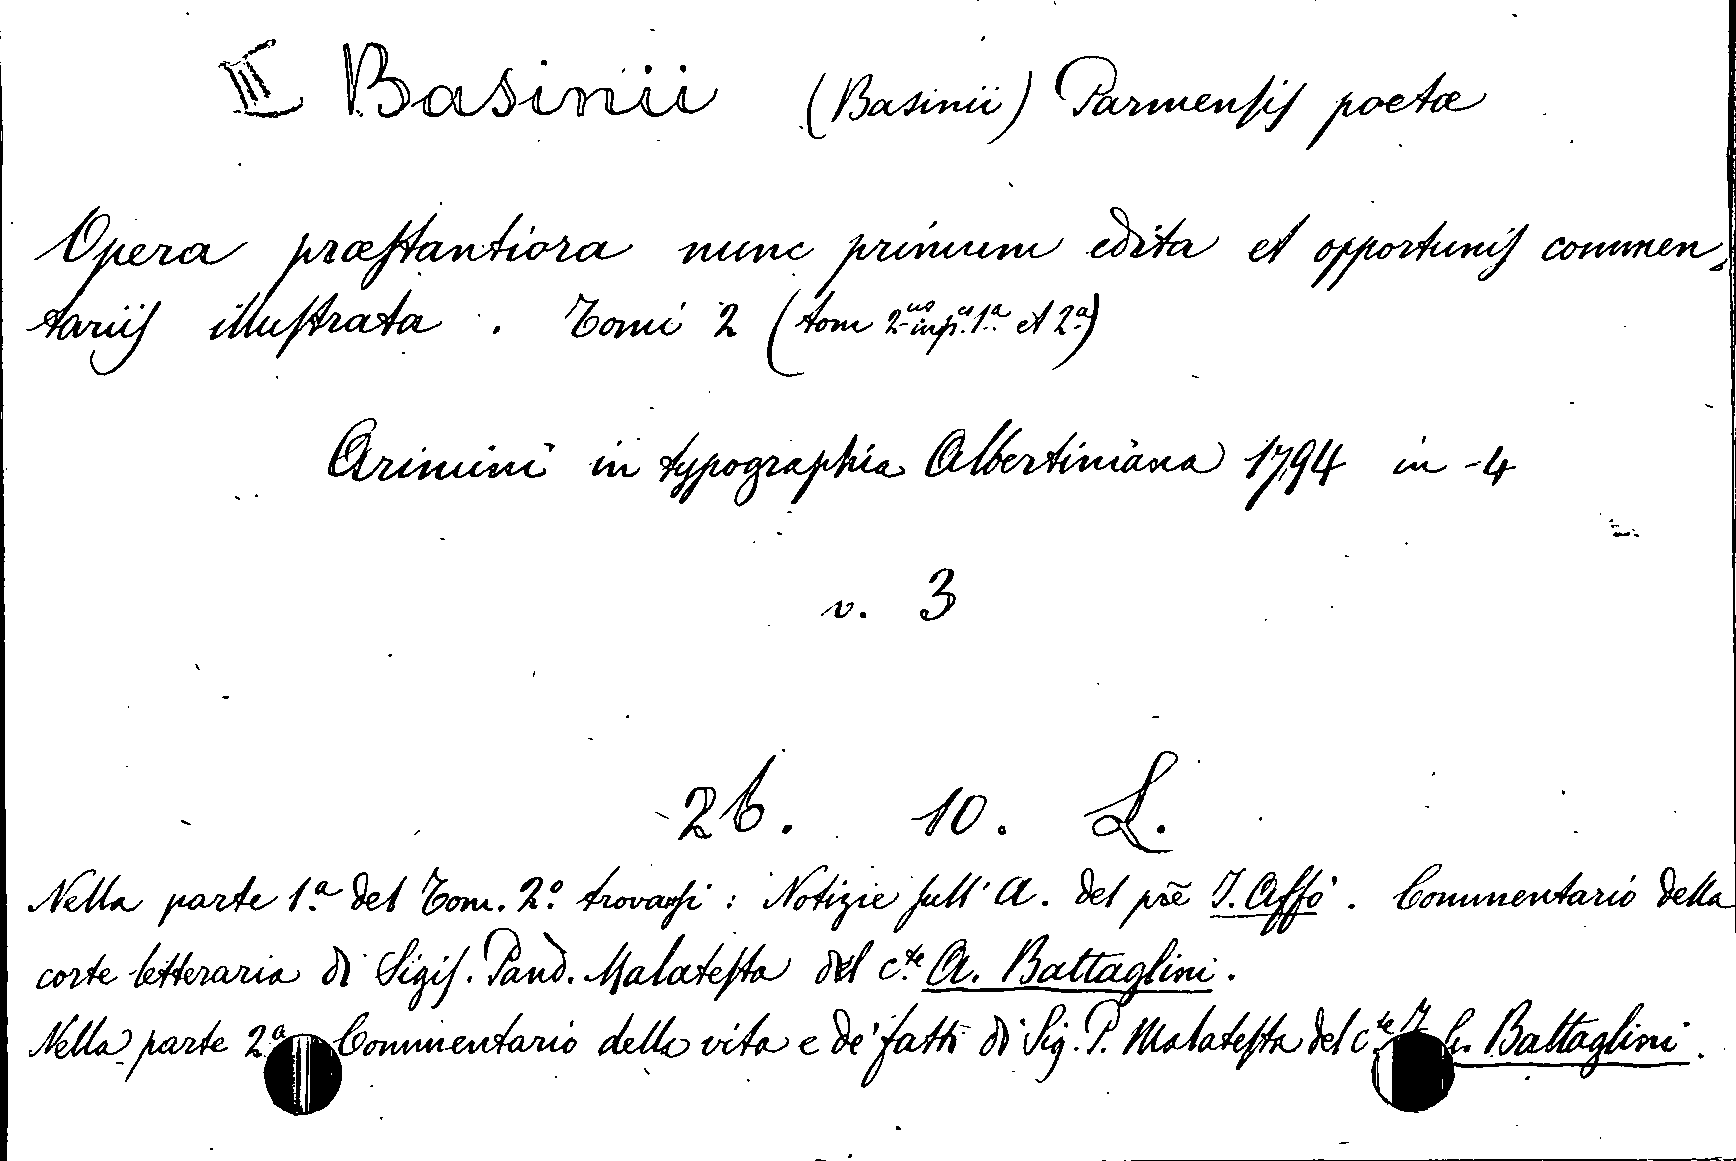 III Basinii (Basinii) Parmensis poetæ
Opera præstantiora nunc primum edita et opportunis commen-
tariis illustrata. Tomi 2 (tom 2us in pa. 1a et 2a)
Arimini in typographia Albertiniana 1794 in-4
v. 3
26. 10. L.
Nella parte 1a del Tom. 2o trovansi: Notizie sull' A. del pre I. Affò. Commentario della
corte letteraria di Sigis. Pand. Malatesta del cte A. Battaglini.
Nella parte 2a Commentario della vita e de' fatti di Sig. P. Malatesta del cte F. G. Battaglini.